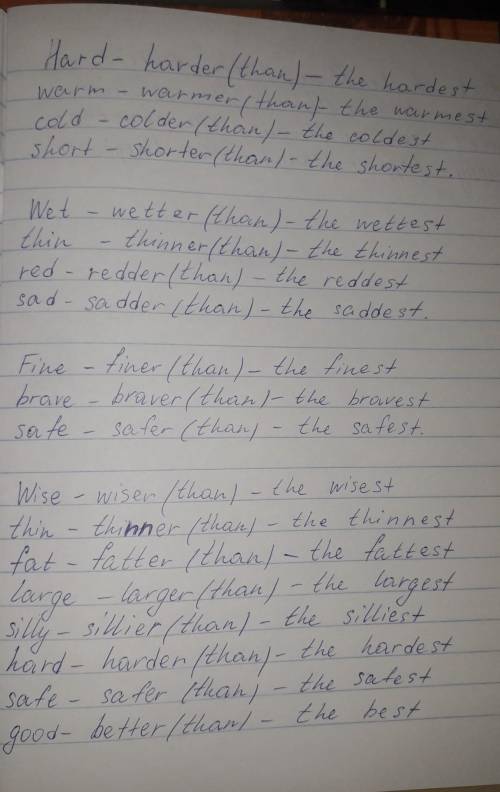 Hard - harder (than) - the hardest
warm - warmer (than) - the warmest
cold - colder (than) - the coldest
short - shorter (than) - the shortest.
Wet - wetter (than) - the wettest
thin - thinner (than) - the thinnest
red - redder (than) - the reddest
sad - sadder (than) - the saddest.
Fine - finer (than) - the finest
brave - braver (than) - the bravest
safe - safer (than) - the safest.
Wise - wiser (than) - the wisest
thin - thinner (than) - the thinnest
fat - fatter (than) - the fattest
large - larger (than) - the largest
silly - sillier (than) - the silliest
hard - harder (than) - the hardest
safe - safer (than) - the safest
good - better (than) - the best